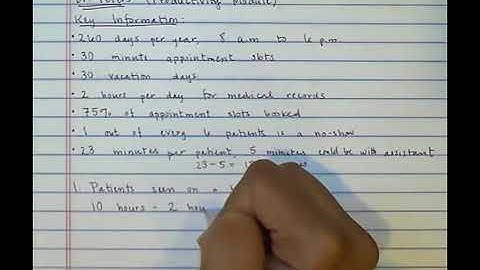 (Productivity Module)
Key Information:
• 240 days per year, 8 a.m to 6 p.m.
• 30 minute appointment slots
• 30 vacation days
• 2 hours per day for medical records
• 75% of appointment slots booked
• 1 out of every 6 patients is a no-show
• 23 minutes per patient, 5 minutes could be with assistant
23-5 =
1. Patients seen on a
10 hours - 2 hou